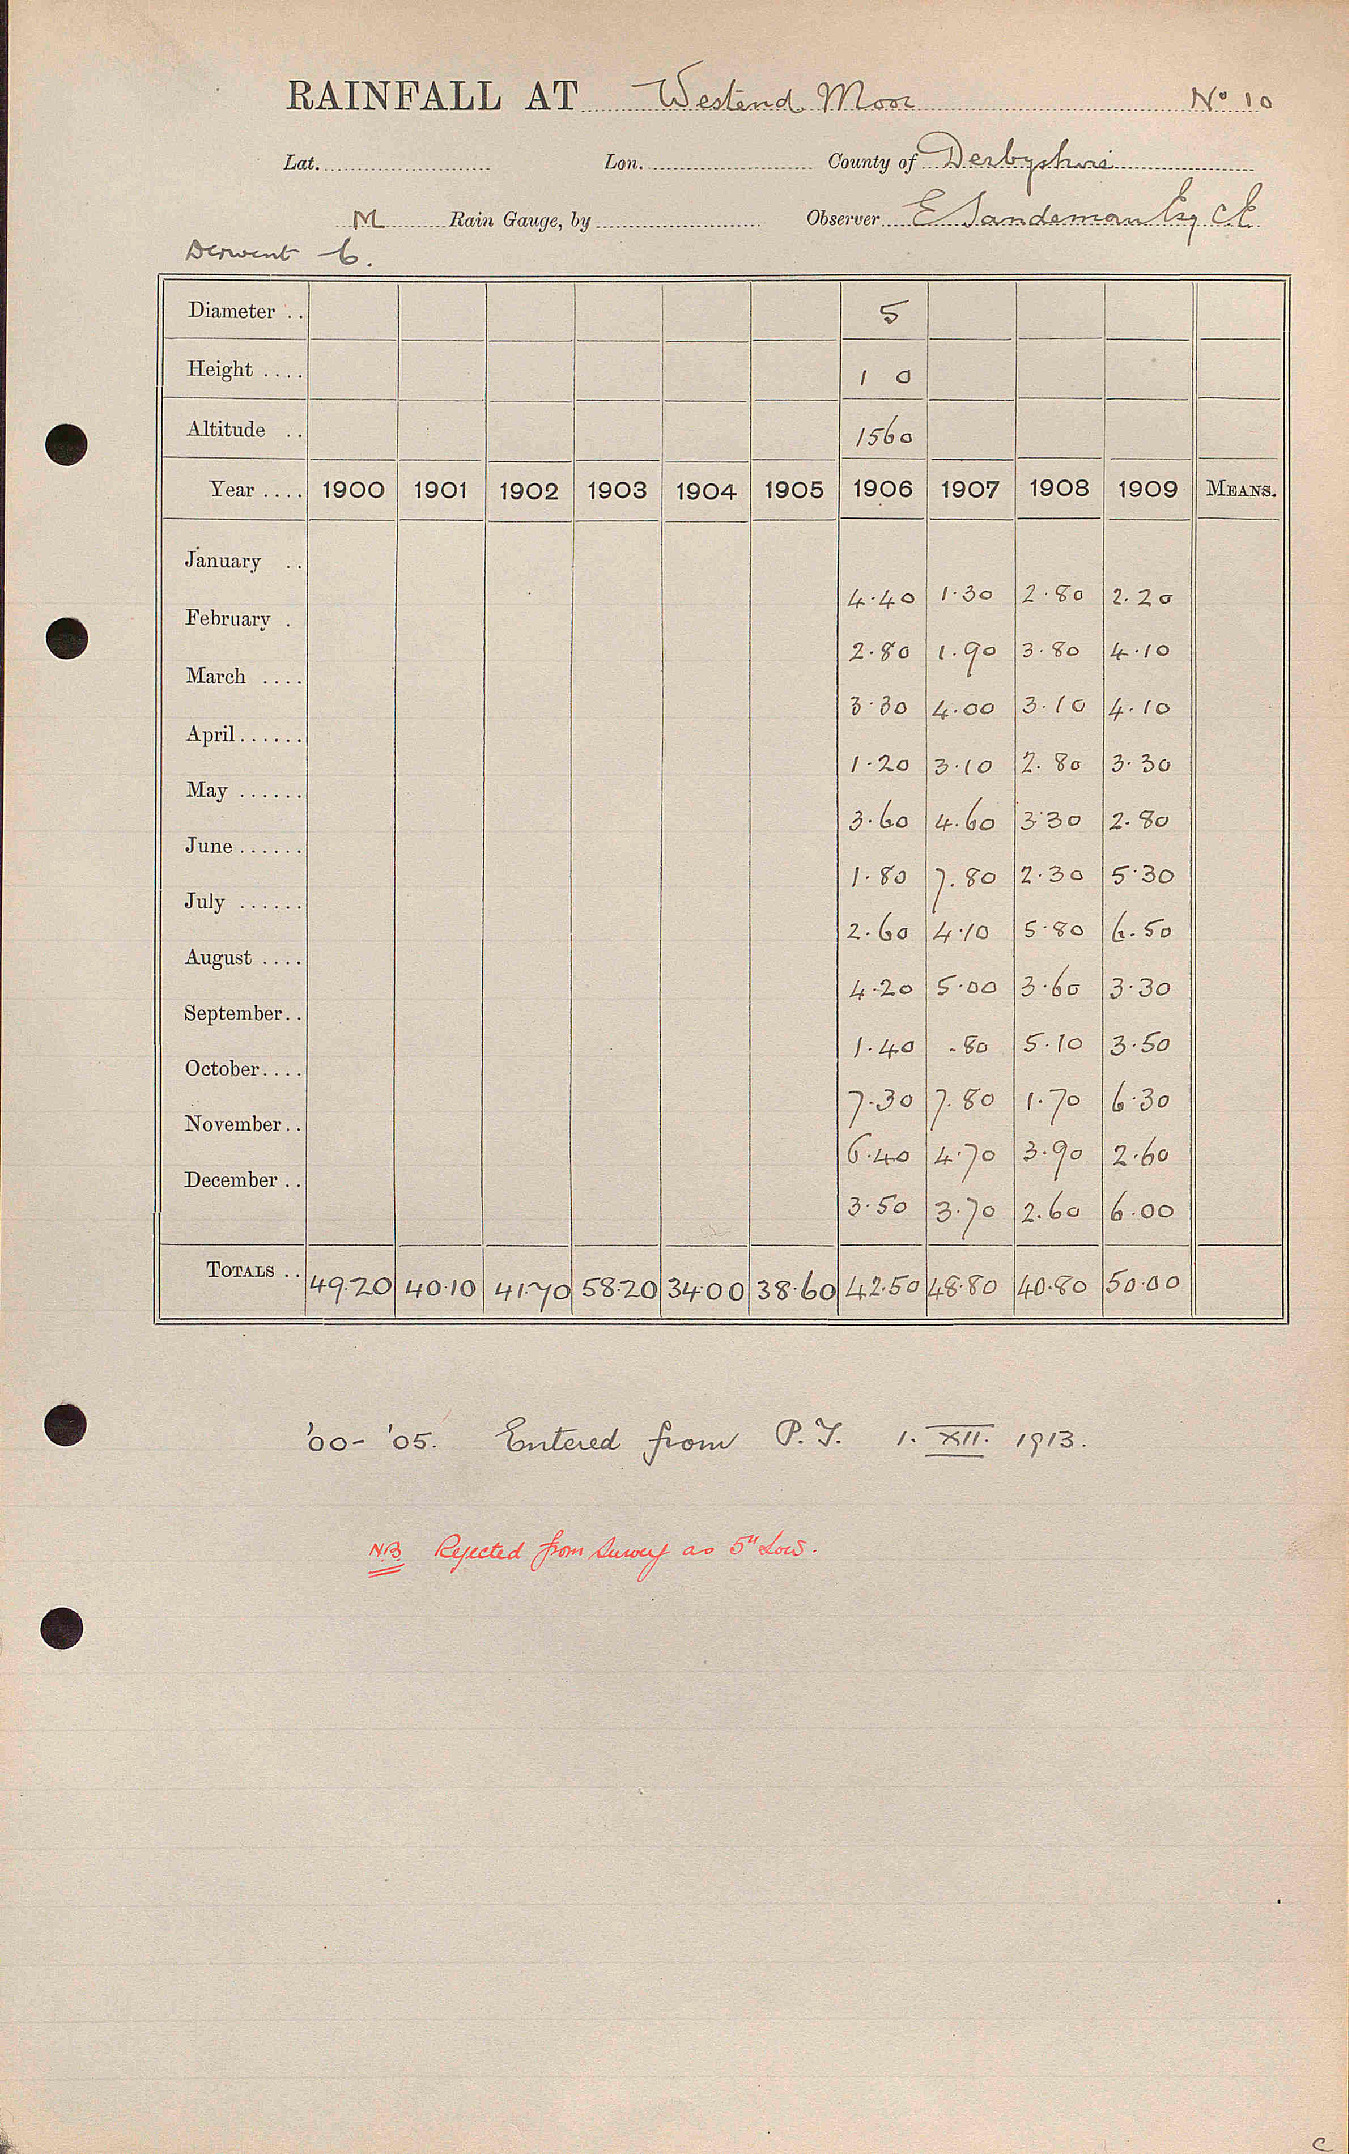 RAINFALL AT Westend Moor No 10
Lat. Lon. County of Derbyshire
M Rain Gauge, by Observer E Sandeman Esq CE
Derwent 6.
Diameter .. 5
Height .... 1 0
Altitude .. 1560
Year .... 1900 1901 1902 1903 1904 1905 1906 1907 1908 1909 MEANS.
January .. 4.40 1.30 2.80 2.20
February . 2.80 1.90 3.80 4.10
March .... 3.30 4.00 3.10 4.10
April...... 1.20 3.10 2.80 3.30
May ...... 3.60 4.60 3.30 2.80
June ...... 1.80 7.80 2.30 5.30
July ...... 2.60 4.10 5.80 6.50
August .... 4.20 5.00 3.60 3.30
September.. 1.40 .80 5.10 3.50
October.... 7.30 7.80 1.70 6.30
November.. 6.40 4.70 3.90 2.60
December .. 3.50 3.70 2.60 6.00
TOTALS .. 49.20 40.10 41.70 58.20 34.00 38.60 42.50 48.80 40.80 50.00
'00- '05. Entered from P.T. 1. XII. 1913.
NB Rejected from Survey as 5" Low.
c